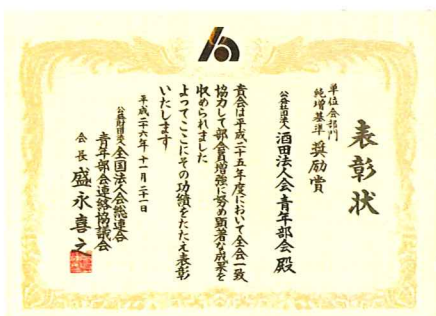 表彰状
単位会部門
純増基準 奨励賞
公益社団法人 酒田法人会 青年部会 殿
貴会は平成二十五年度において全会一致
協力して部会員増強に努め顕著な成果を
収められました
よってここにその功績をたたえ表彰
いたします
平成二十六年十一月二十一日
公益財団法人 全国法人会総連合
青年部会連絡協議会
会長 盛永喜之